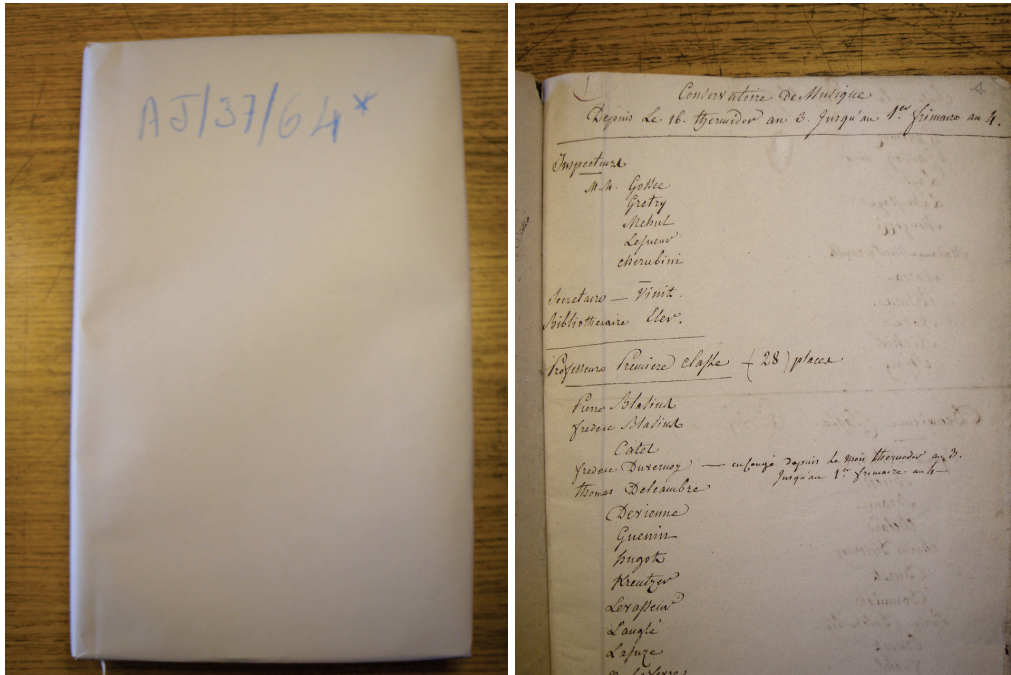 AJ/37/64*
1
4
Conservatoire de Musique
Depuis Le 16. thermidor an 3. Jusqu'au 1er frimaire an 4.
Inspecteurs
M.rs. Gossec
Gretry
Mehul
Lesueur
cherubini
Secretaire — Vinit.
Bibliothecaire Eler.
Professeurs Premiere classe — (28) places
Pierre Blasius
frederic Blasius
Catel
frederic Duvernoy — en congé depuis le mois thermidor an 3.
Jusqu'au 1er frimaire an 4
thomas Delcambre
Devienne
Guenin
hugot
Kreutzer
Levasseur
Langlé
Lasuze